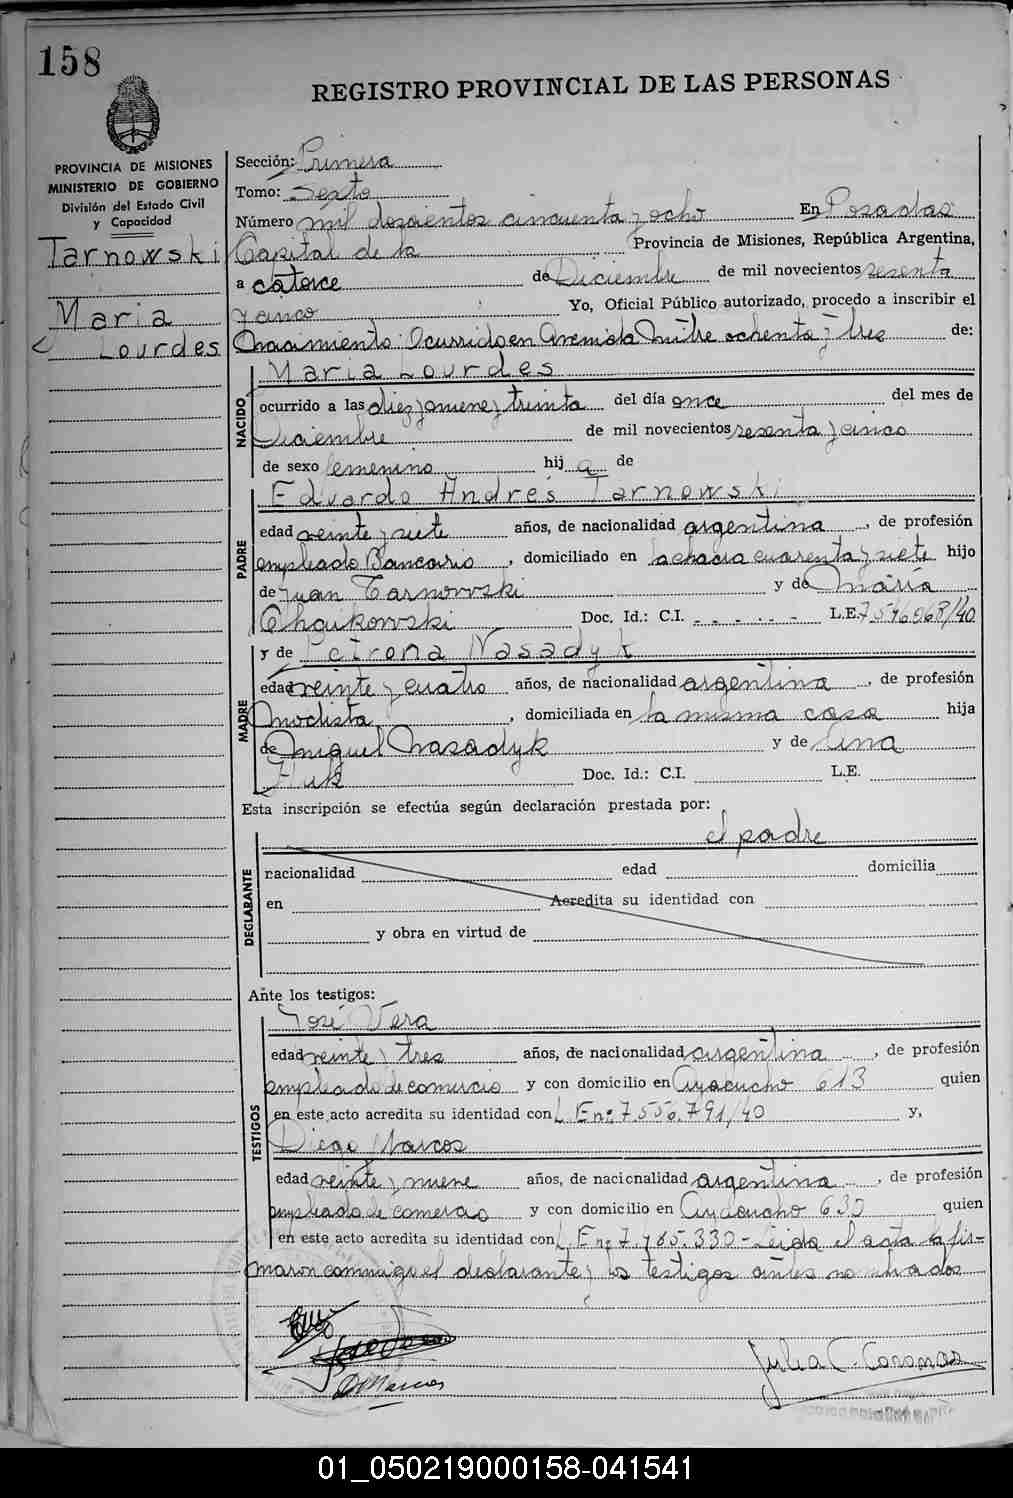 158
REGISTRO PROVINCIAL DE LAS PERSONAS
PROVINCIA DE MISIONES
MINISTERIO DE GOBIERNO
División del Estado Civil
y Capacidad
Tarnowski
Maria
Lourdes
Sección: Primera
Tomo: Sexto
Número mil doscientos cincuenta y ocho En Posadas
Capital de la Provincia de Misiones, República Argentina,
a catorce de Diciembre de mil novecientos sesenta
y cinco Yo, Oficial Público autorizado, procedo a inscribir el
Nacimiento: Ocurrido en Avenida Mitre ochenta y tres de:
NACIDO
Maria Lourdes
ocurrido a las diez y nueve y treinta del día once del mes de
Diciembre de mil novecientos sesenta y cinco
de sexo femenino hij a de
PADRE
Eduardo Andrés Tarnowski
edad veinte y siete años, de nacionalidad argentina, de profesión
empleado Bancario, domiciliado en la chacra cuarenta y siete hijo
de Juan Tarnowski y de María
Doc. Id.: C.I. - - - - - L.E. 7546068/40
MADRE
y de Petrona Nasadyk
edad veinte y cuatro años, de nacionalidad argentina, de profesión
Modista, domiciliada en la misma casa hija
de Miguel Nasadyk y de Lina
Huk Doc. Id.: C.I. L.E.
Esta inscripción se efectúa según declaración prestada por:
el padre
DECLARANTE
nacionalidad edad domicilia
en Acredita su identidad con
y obra en virtud de
Ante los testigos:
TESTIGOS
José Vera
edad veinte y tres años, de nacionalidad argentina, de profesión
empleado de comercio y con domicilio en Ayacucho 613 quien
en este acto acredita su identidad con L. E nº 7.556.791/40 y,
Diego Marcos
edad veinte y nueve años, de nacionalidad argentina, de profesión
empleado de comercio y con domicilio en Ayacucho 630 quien
en este acto acredita su identidad con L. E nº 7.465.330 - Leida el acta la fir=
maron conmigo el declarante y los testigos antes nombrados
D Marcos
Julia C. Coronas
01_050219000158-041541